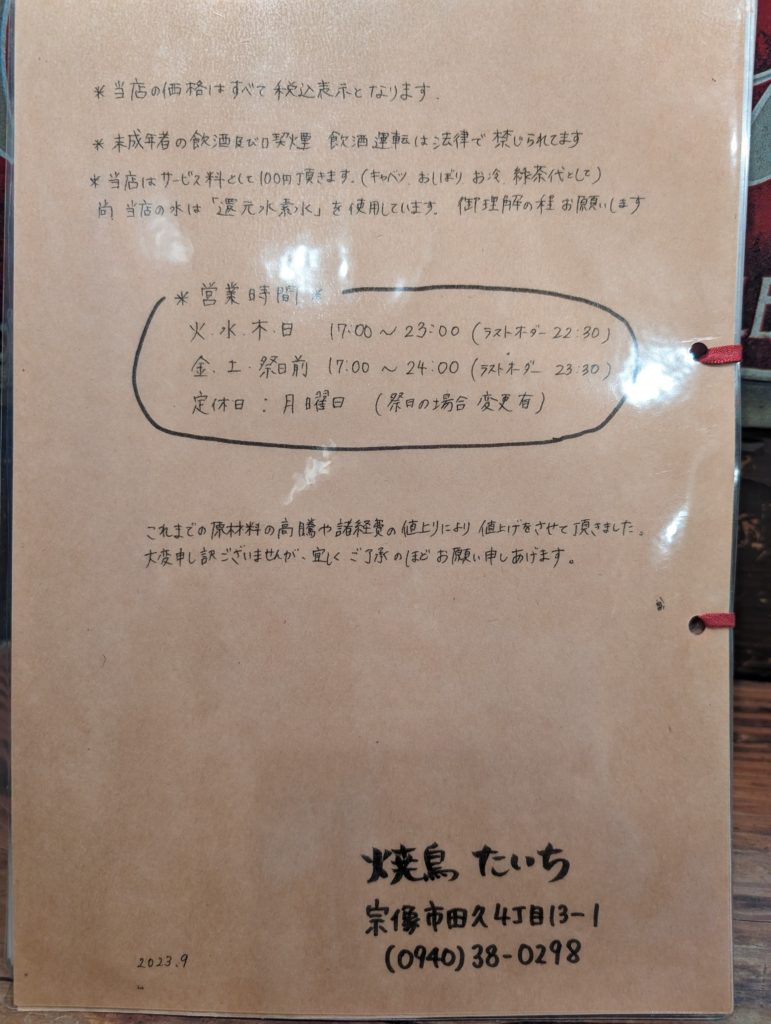 *当店の価格はすべて税込表示となります.
*未成年者の飲酒及び喫煙 飲酒運転は法律で禁じられてます
*当店はサービス料として100円頂きます.(キャベツ、おしぼり お冷、緑茶代として)
尚 当店の水は「還元水素水」を使用しています. 御理解の程 お願いします
*営業時間*
火.水.木.日 17:00~23:00(ラストオーダー 22:30)
金.土.祭日前 17:00~24:00(ラストオーダー 23:30)
定休日:月曜日 (祭日の場合 変更有)
これまでの原材料の高騰や諸経費の値上りにより 値上げをさせて頂きました。
大変申し訳ございませんが、宜しく ご了承のほど お願い申しあげます。
焼鳥 たいち
宗像市田久4丁目13-1
(0940)38-0298
2023.9